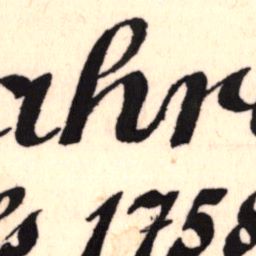 ahr
s 1758